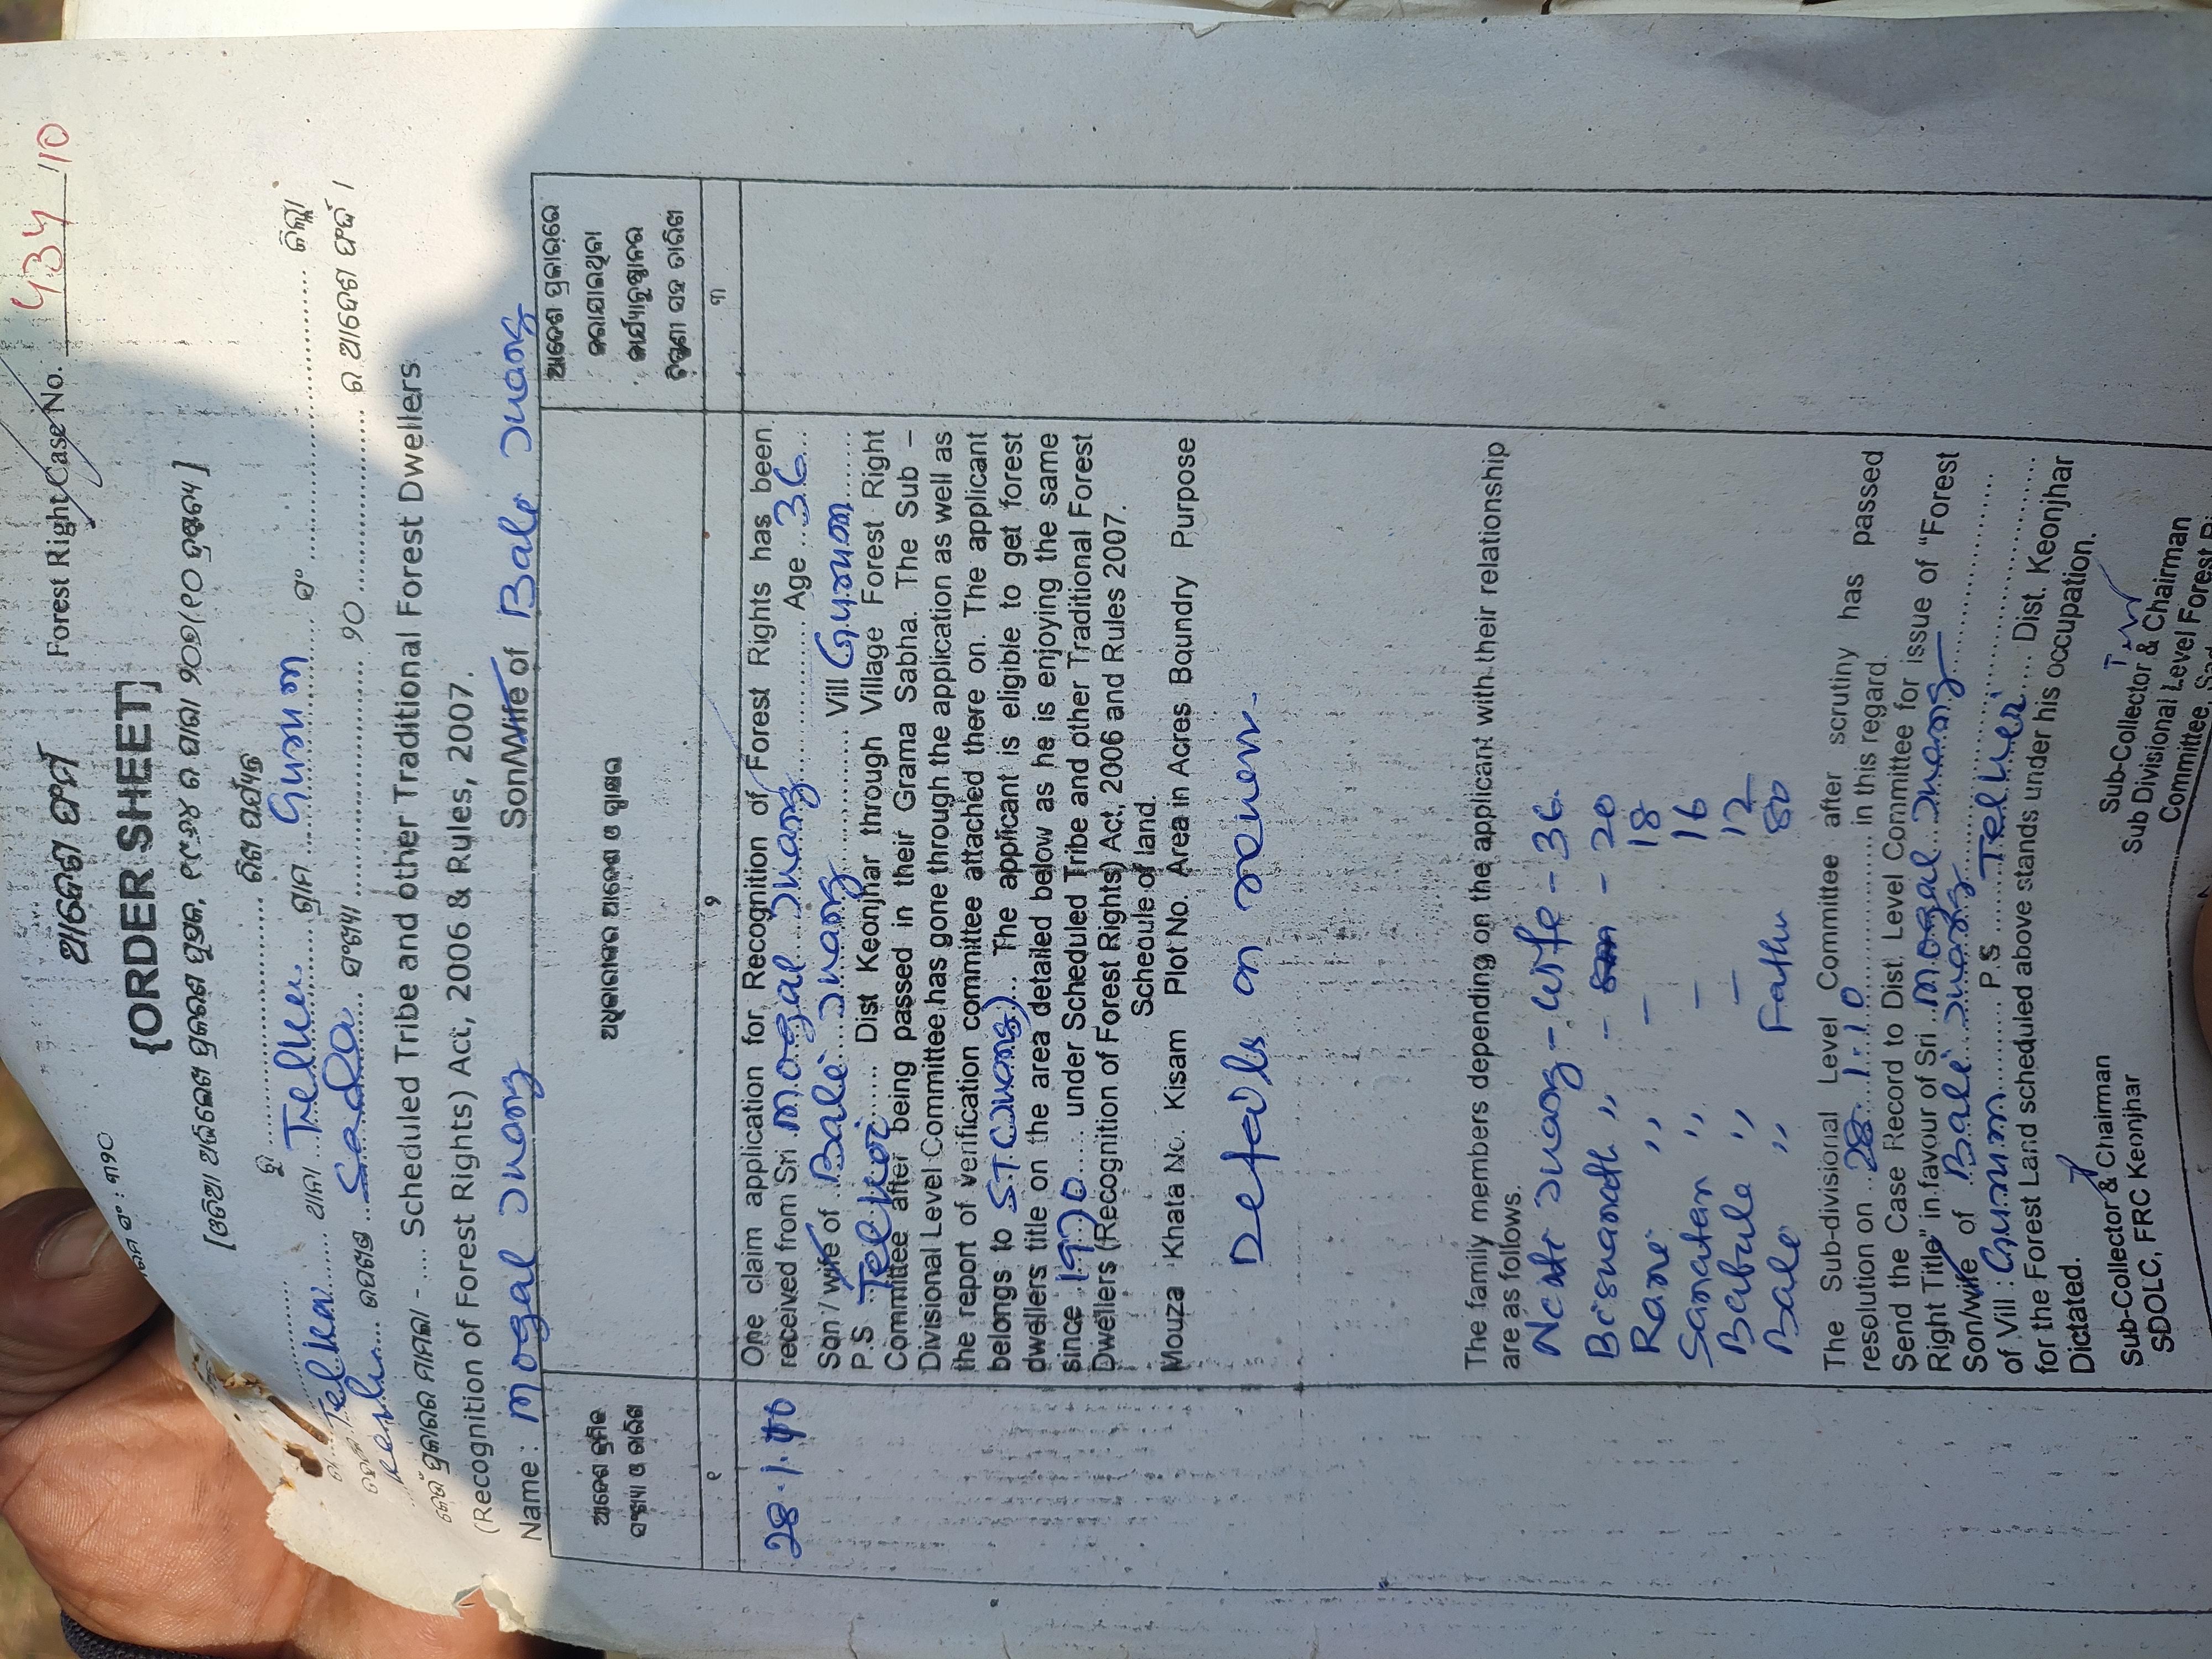 ଆଦେଶ ଫର୍ମ Forest Right Case No. 434/10
{ORDER SHEET}
ରୁ ........ ରିଖ ପର୍ଯ୍ୟନ୍ତ
Telkoi ଥାନା Telkoi ଗ୍ରାମ ନଂ ........ ଜିଲ୍ଲା
Sadar ସଂଖ୍ୟା ........ ୨୦ ........ ର ଆଦେଶ ଫର୍ଦ୍ଦ ।
ମାମଲା - .... Scheduled Tribe and other Traditional Forest Dwellers
(Recognition of Forest Rights) Act, 2006 & Rules, 2007.
Name : Mogal Juang Son/Wife of Bali Juang
ଆଦେଶ କ୍ରମିକ ସଂଖ୍ୟା ଓ ତାରିଖ
ଅଧିକାରୀଙ୍କର ଆଦେଶ ଓ ସ୍ୱାକ୍ଷର
୧ ୨ ୩
28.1.10
One claim application for Recognition of Forest Rights has been
received from Sri Mogal Juang ........ Age ..36...
Son / wife of Bali Juang ........ Vill
P.S Telkoi ...... Dist Keonjhar through Village Forest Right
Committee after being passed in their Grama Sabha. The Sub –
Divisional Level Committee has gone through the application as well as
the report of verification committee attached there on. The applicant
belongs to S.T.(Juang)... The applicant is eligible to get forest
dwellers title on the area detailed below as he is enjoying the same
since 1970 .... under Scheduled Tribe and other Traditional Forest
Dwellers (Recognition of Forest Rights) Act, 2006 and Rules 2007.
Schedule of land.
Mouza Khata No. Kisam Plot No. Area in Acres Boundry Purpose
Details on
The family members depending on the applicant with their relationship
are as follows.
Juang - Wife - 36
Biswanath " - son - 20
Rani " - 18
Sanatan " - 16
Babula " - 12
Bali " Father 80
The Sub-divisional Level Committee after scrutiny has passed
resolution on ..28.1.10........ in this regard.
Send the Case Record to Dist. Level Committee for issue of "Forest
Right Title" in favour of Sri Mogal Juang
Son/wife of Bali Juang
of Vill : ........ P.S ..... Telkoi ..... Dist. Keonjhar
for the Forest Land scheduled above stands under his occupation.
Dictated.
Sub-Collector & Chairman
SDOLC, FRC Keonjhar
Sub-Collector & Chairman
Sub Divisional Level Forest
Committee, Sad